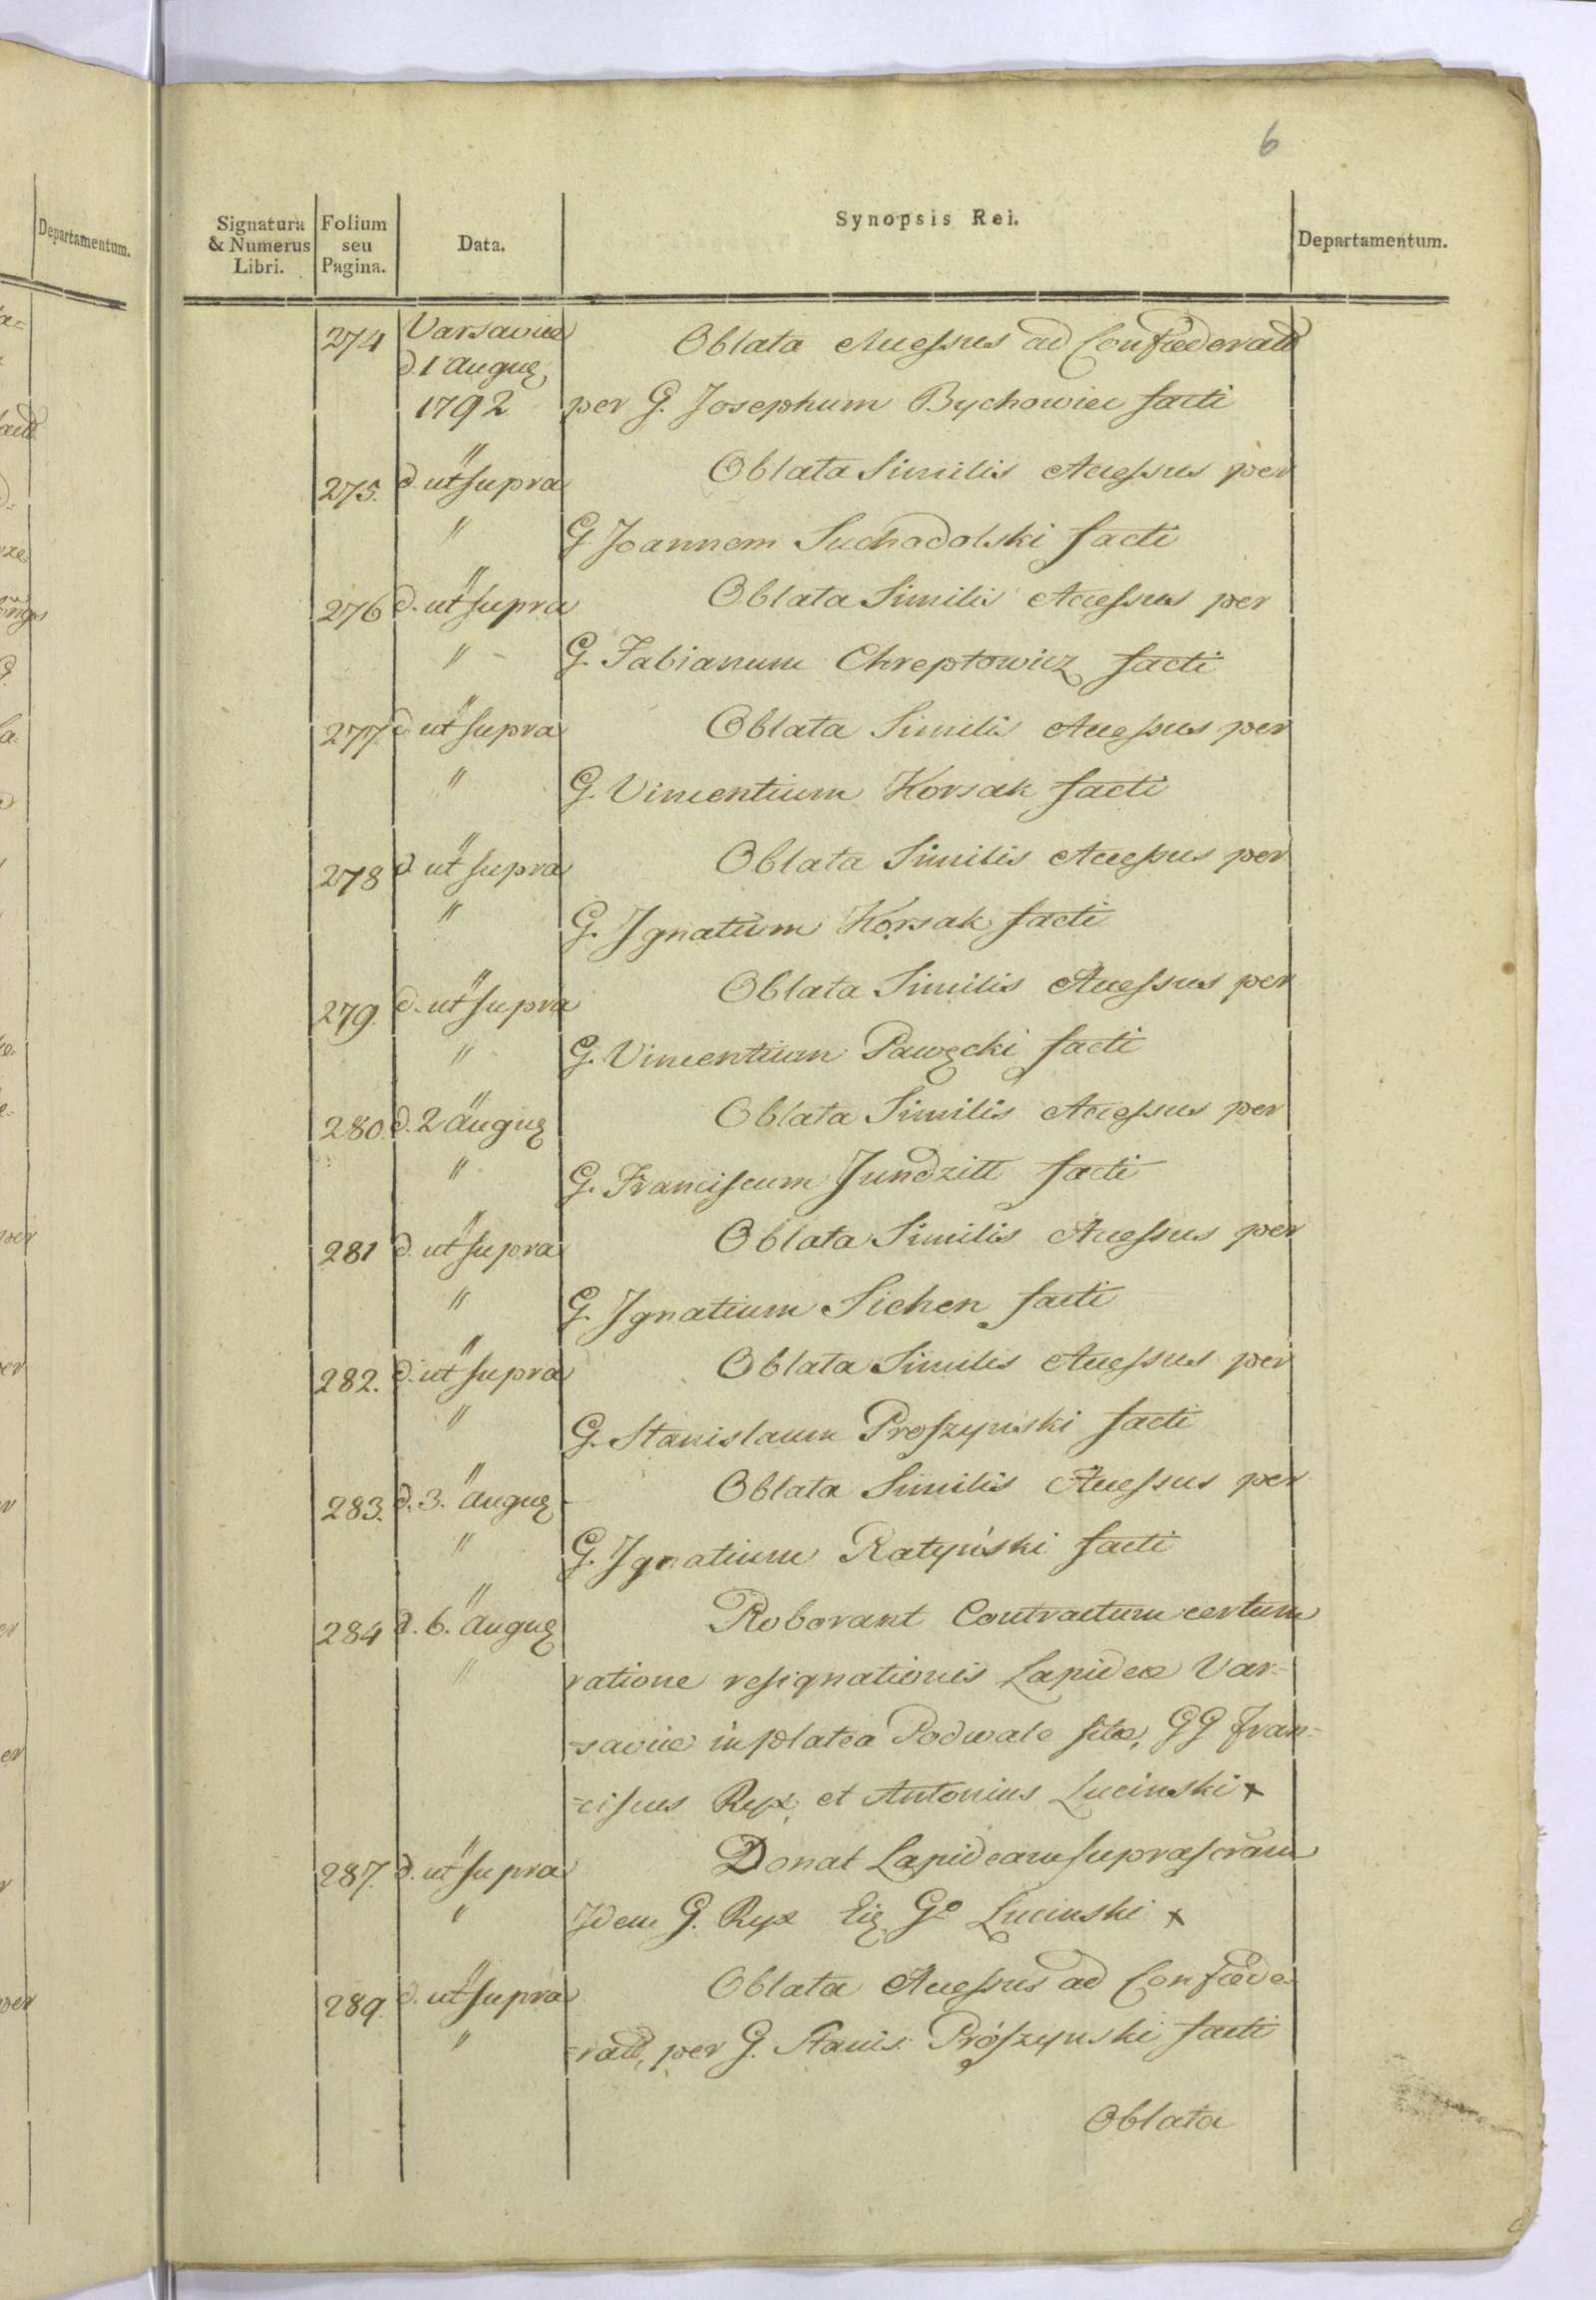 6
Signatura & Numerus Libri. | Folium seu Pagina. | Data. | Synopsis Rei. | Departamentum.
274 Varsaviæ Oblata Accessus ad Confœderatō
d. 1 Augus
1792 per G. Josephum Bychowiec facti
275. d. ut supra Oblata Similis Accessus per
" G. Joannem Suchodolski facti
276 d. ut supra Oblata Similis Accessus per
" G. Fabianum Chreptowicz facti
277. d. ut supra Oblata Similis Accessus per
" G. Vincentium Korsak facti
278 d. ut supra Oblata Similis Accessus per
" G. Ignatium Korsak facti
279. d. ut supra Oblata Similis Accessus per
" G. Vincentium Pawęcki facti
280. d. 2 Augus Oblata Similis Accessus per
" G. Franciscum Jundziłł facti
281 d. ut supra Oblata Similis Accessus per
" G. Ignatium Sichen facti
282. d. ut supra Oblata Similis Accessus per
" G. Stanislaum Proszyński facti
283. d. 3. Augus Oblata Similis Accessus per
" G. Ignatium Ratyński facti
284 d. 6. Augus Roborant Contractum certum
" ratione resignationis Lapideæ Var=
=saviæ in platea Podwale sitæ, GG Fran=
=ciscus Ryx et Antonius Lucinski x
287. d. ut supra Donat Lapideam suprascram
" Idem G. Ryx Eiq Go Lucinski x
289. d. ut supra Oblata Accessus ad Confœde
" =ratō, per G. Stanis. Prószynski facti
Oblata
Departamentum.